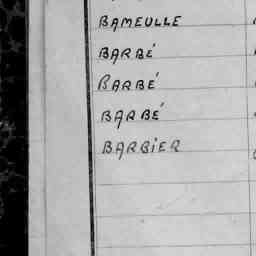 BAMEULLE
BARBÉ
BARBÉ
BARBÉ
BARBIER